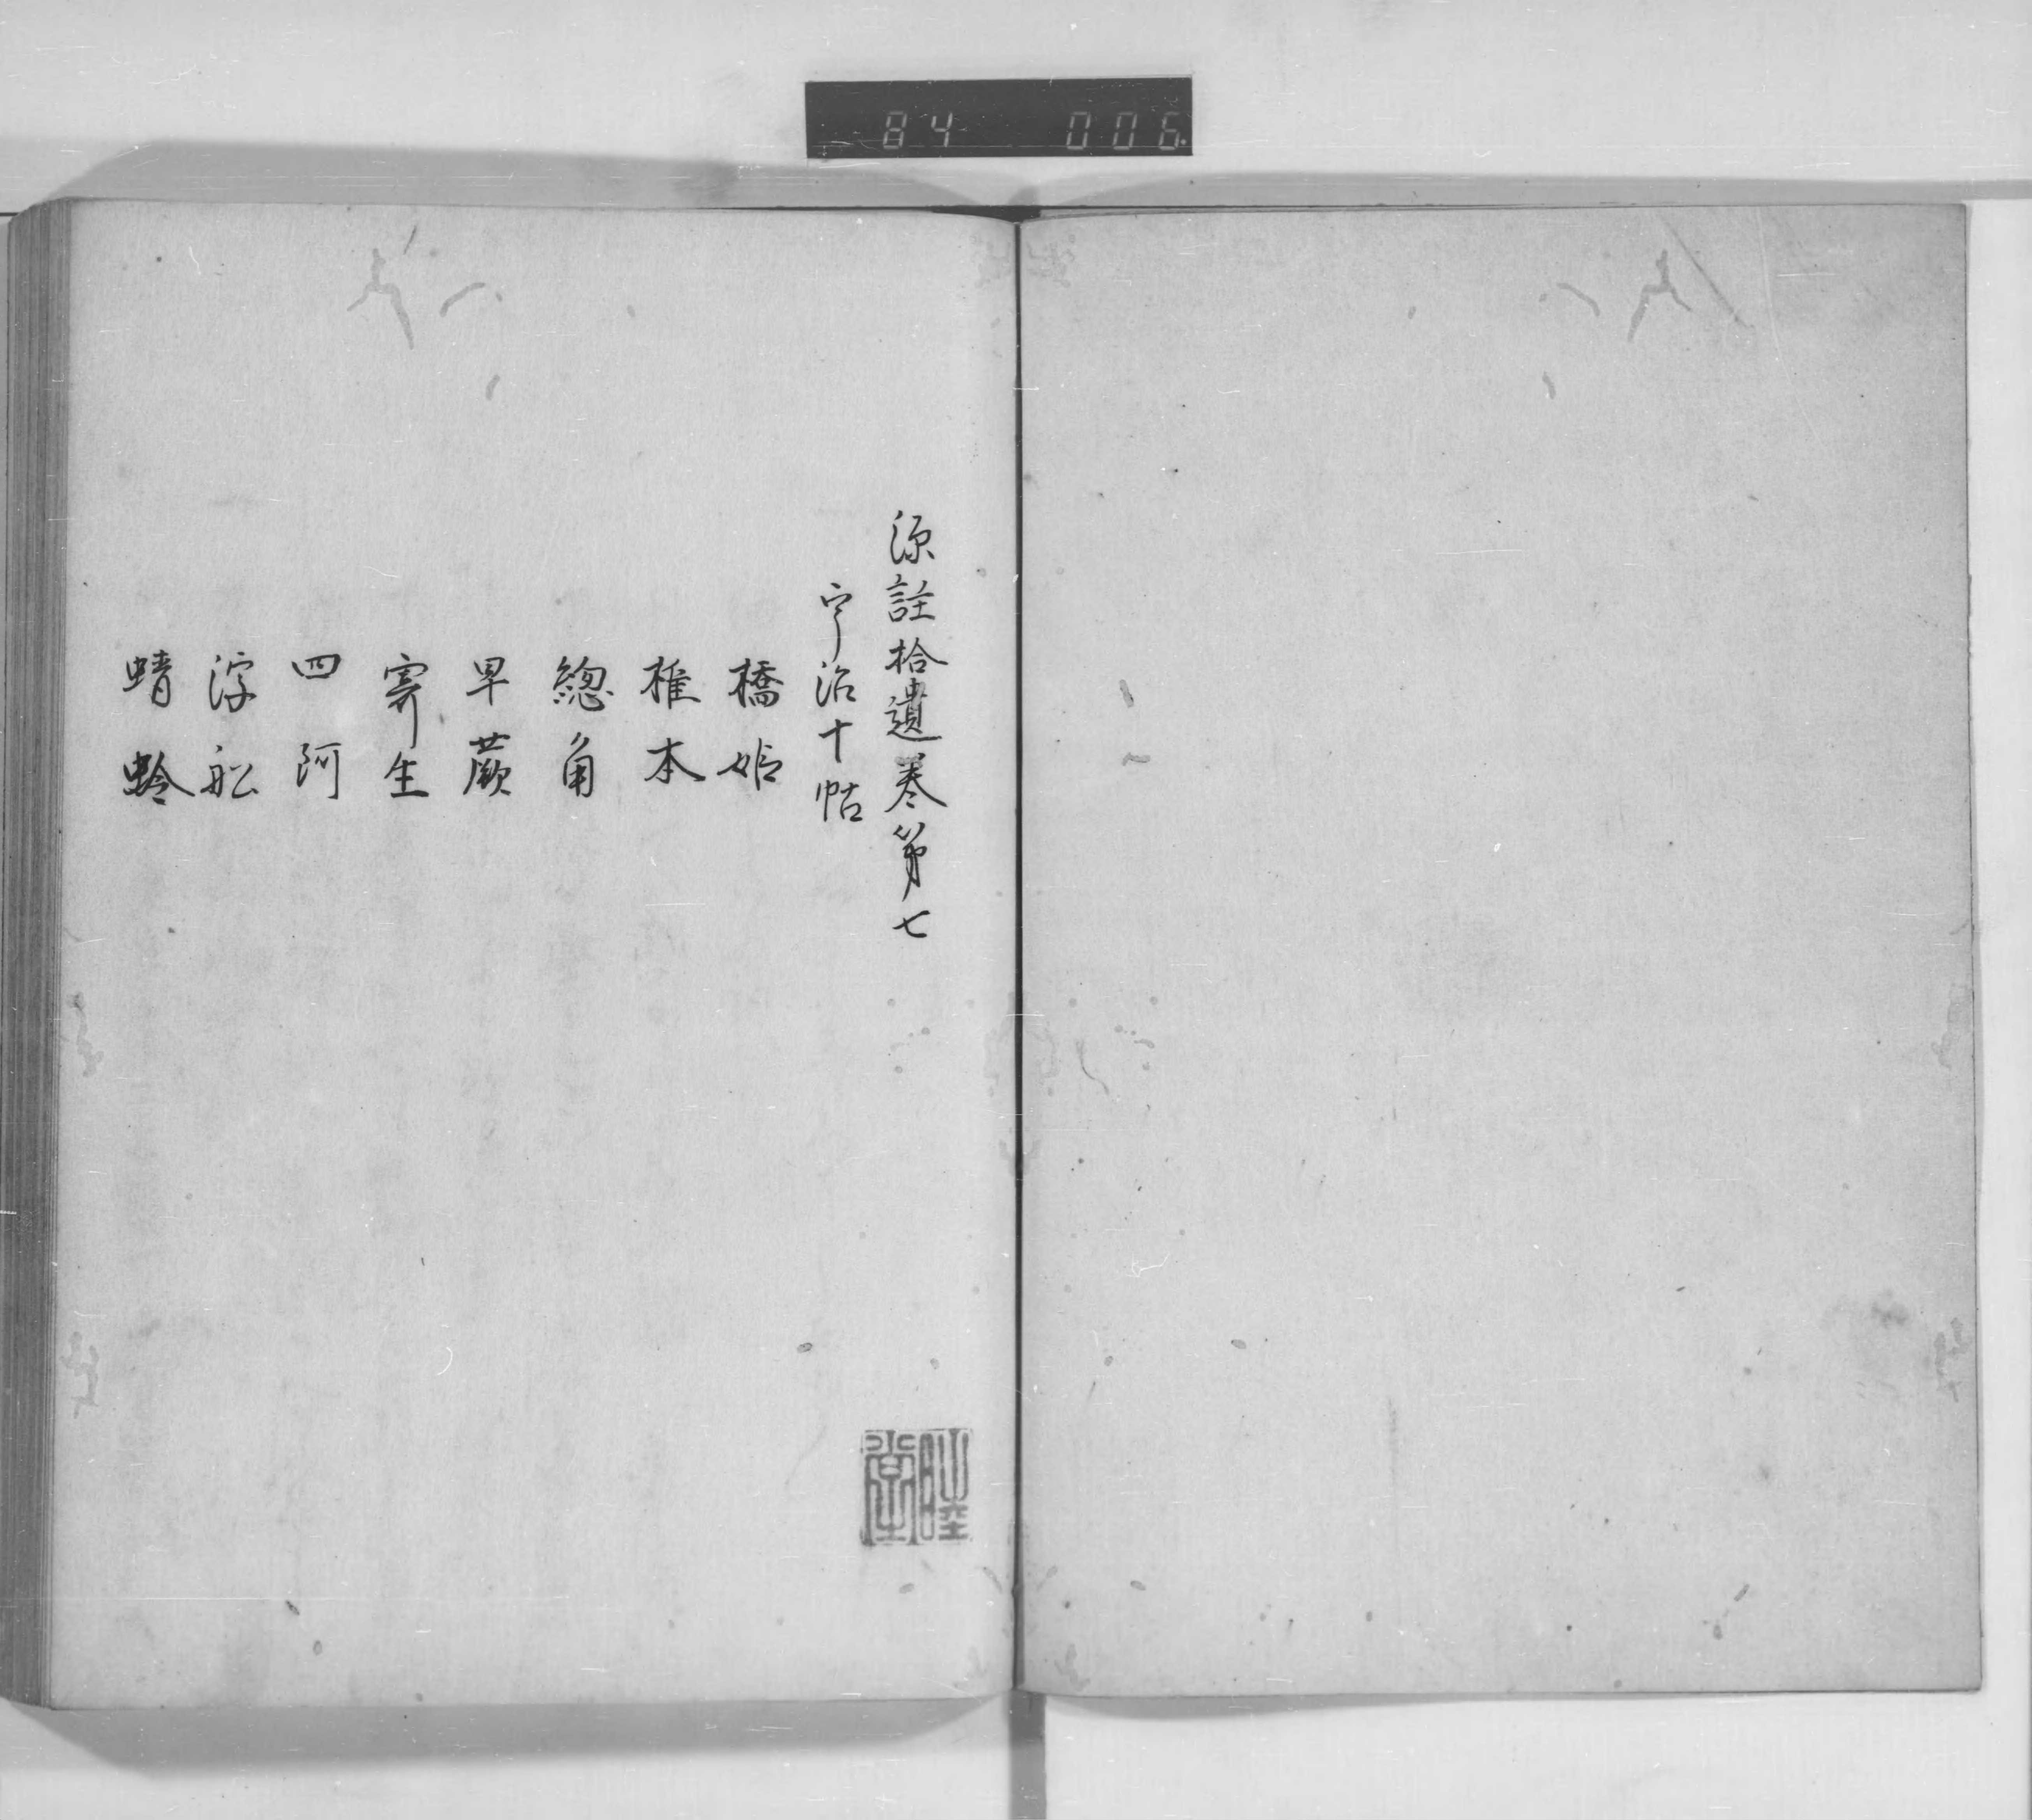 84 006
源註拾遺巻第七
宇治十帖
橋姫
椎本
總角
早蕨
寄生
四阿
浮舩
蜻蛉